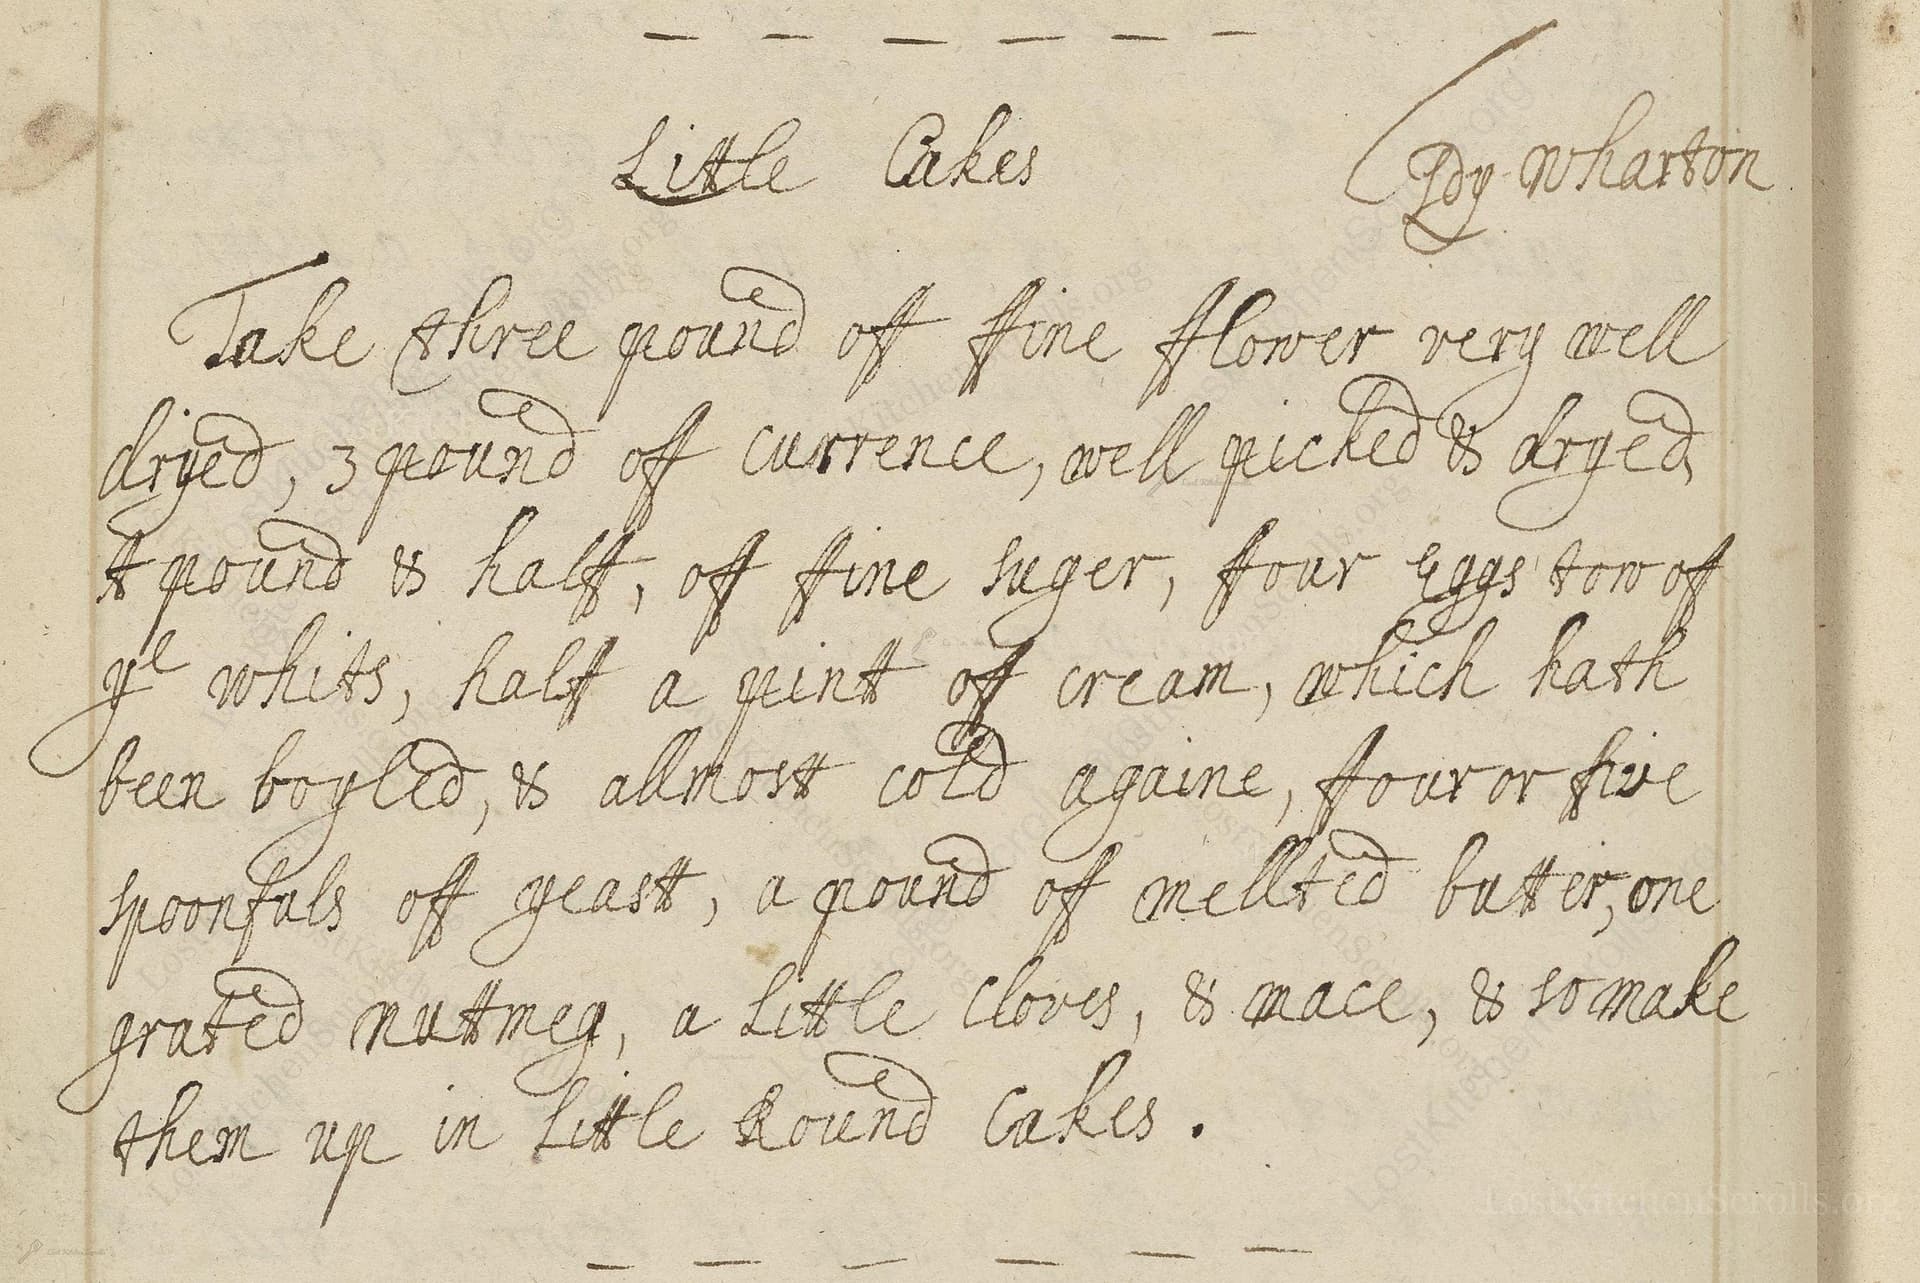 Little Cakes Ldy Wharton
Take three pound off ffine fflower very well
dryed, 3 pound off currence, well picked & dryed
A pound & half, off ffine suger, ffour Eggs tow off
ye whits, half a pint off cream, which hath
been boyled, & allmost cold againe, ffour or five
spoonfuls off yeast, a pound off mellted butter, one
grated nuttmeg, a Little Cloves, & mace, & so make
them up in Little Round Cakes.
LostKitchenScrolls.org